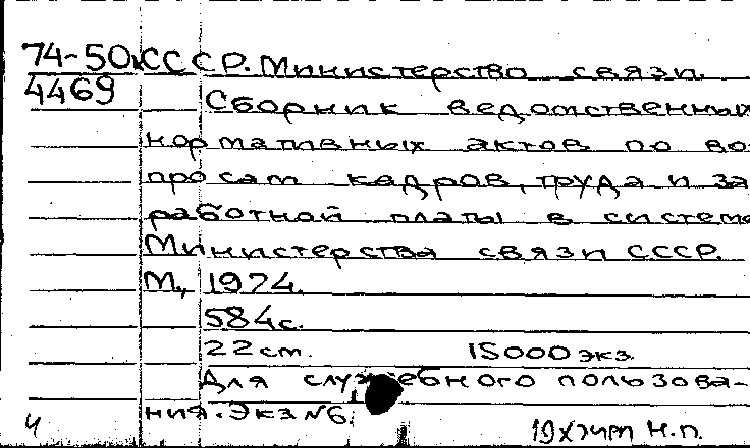 74-50к СССР. Министерство связи.
4469 Сборник ведомственных
нормативных актов по во
просам кадров, труда и за
работной платы в системе
Министерства связи СССР.
М, 1974.
584с.
22 ст. 15000 экз.
Для служебного пользова-
ния. Экз N6.
ч Н.П.